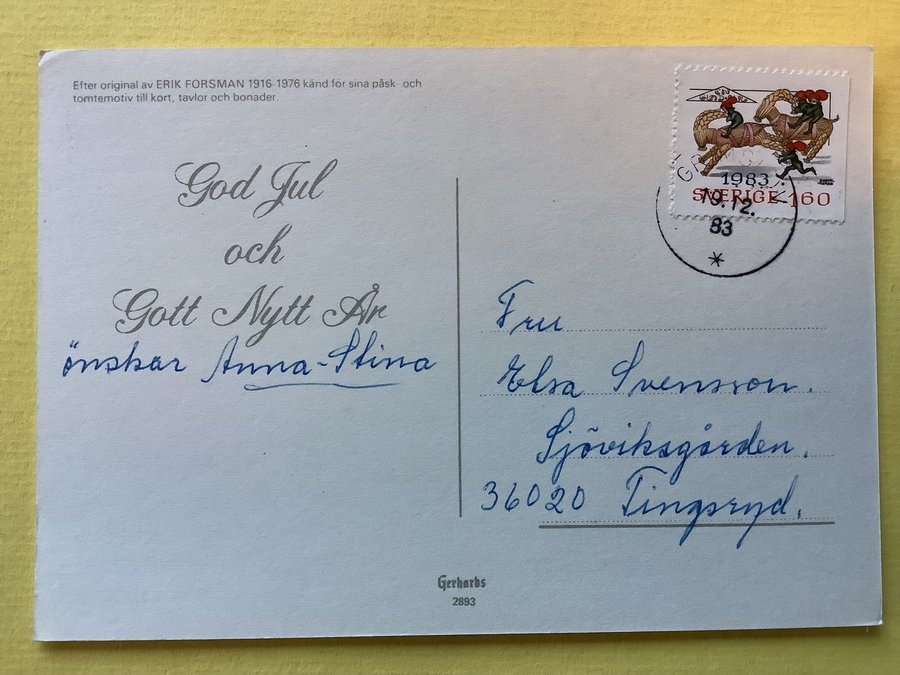 Efter original av ERIK FORSMAN 1916-1976 känd för sina påsk- och
tomtemotiv till kort, tavlor och bonader.
God Jul
och
Gott Nytt År
önskar Anna-Stina
1983
SVERIGE 160
19.12.
83
Fru
Elsa Svensson.
Sjöviksgården.
36020 Tingsryd.
Gerhards
2893